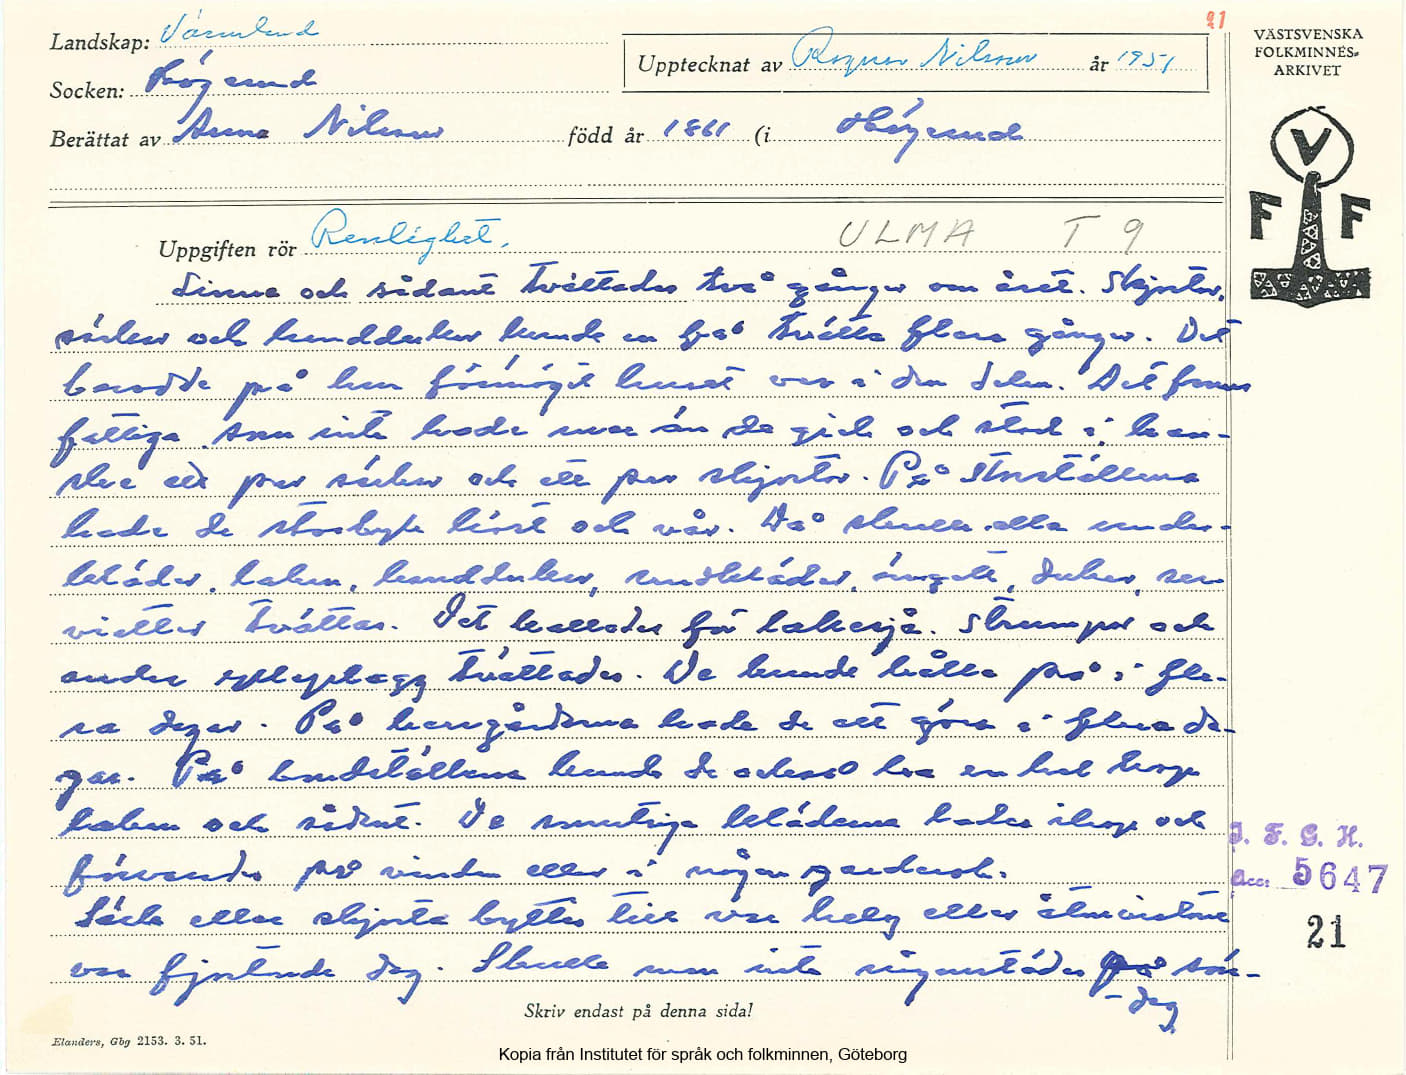 21
Landskap: Värmland
Upptecknat av Ragnar Nilsson år 1951
VÄSTSVENSKA
FOLKMINNES-
ARKIVET
Socken: Högerud
Berättat av Anna Nilsson född år 1861 (i Högerud
V
F F
Uppgiften rör Renlighet.
ULMA T 9
Linne och sådant tvättades två gånger om året. Skjortor,
särkar och handdukar kunde en få tvätta flera gånger. Det
berodde på hur förmöget huset var i den delen. Det fanns
fattiga, som inte hade mer än de gick och stod i, kan-
ske ett par särkar och ett par skjortor. På storställena
hade de storbyke höst och vår. Då skulle alla under-
kläder, lakan, handdukar, sängkläder, örngott, dukar, ser-
vietter tvättas. Det kallades för Strumpor och
andra ylleplagg tvättades. De kunde hålla på i fle-
ra dagar. På herrgårdarna hade de att göra i flera da-
gar. På bondställena kunde de också ha en hel hop
lakan och sådant. De smutsiga kläderna lades ihop och
förvarades på vinden eller i någon garderob.
Särk eller skjorta byttes till var helg eller åtminstone
var fjortonde dag. Skulle man inte någonstädes på sön-
-dag
J. F. G. H.
Acc: 5647
21
Skriv endast på denna sida!
Elanders, Gbg 2153. 3. 51.
Kopia från Institutet för språk och folkminnen, Göteborg